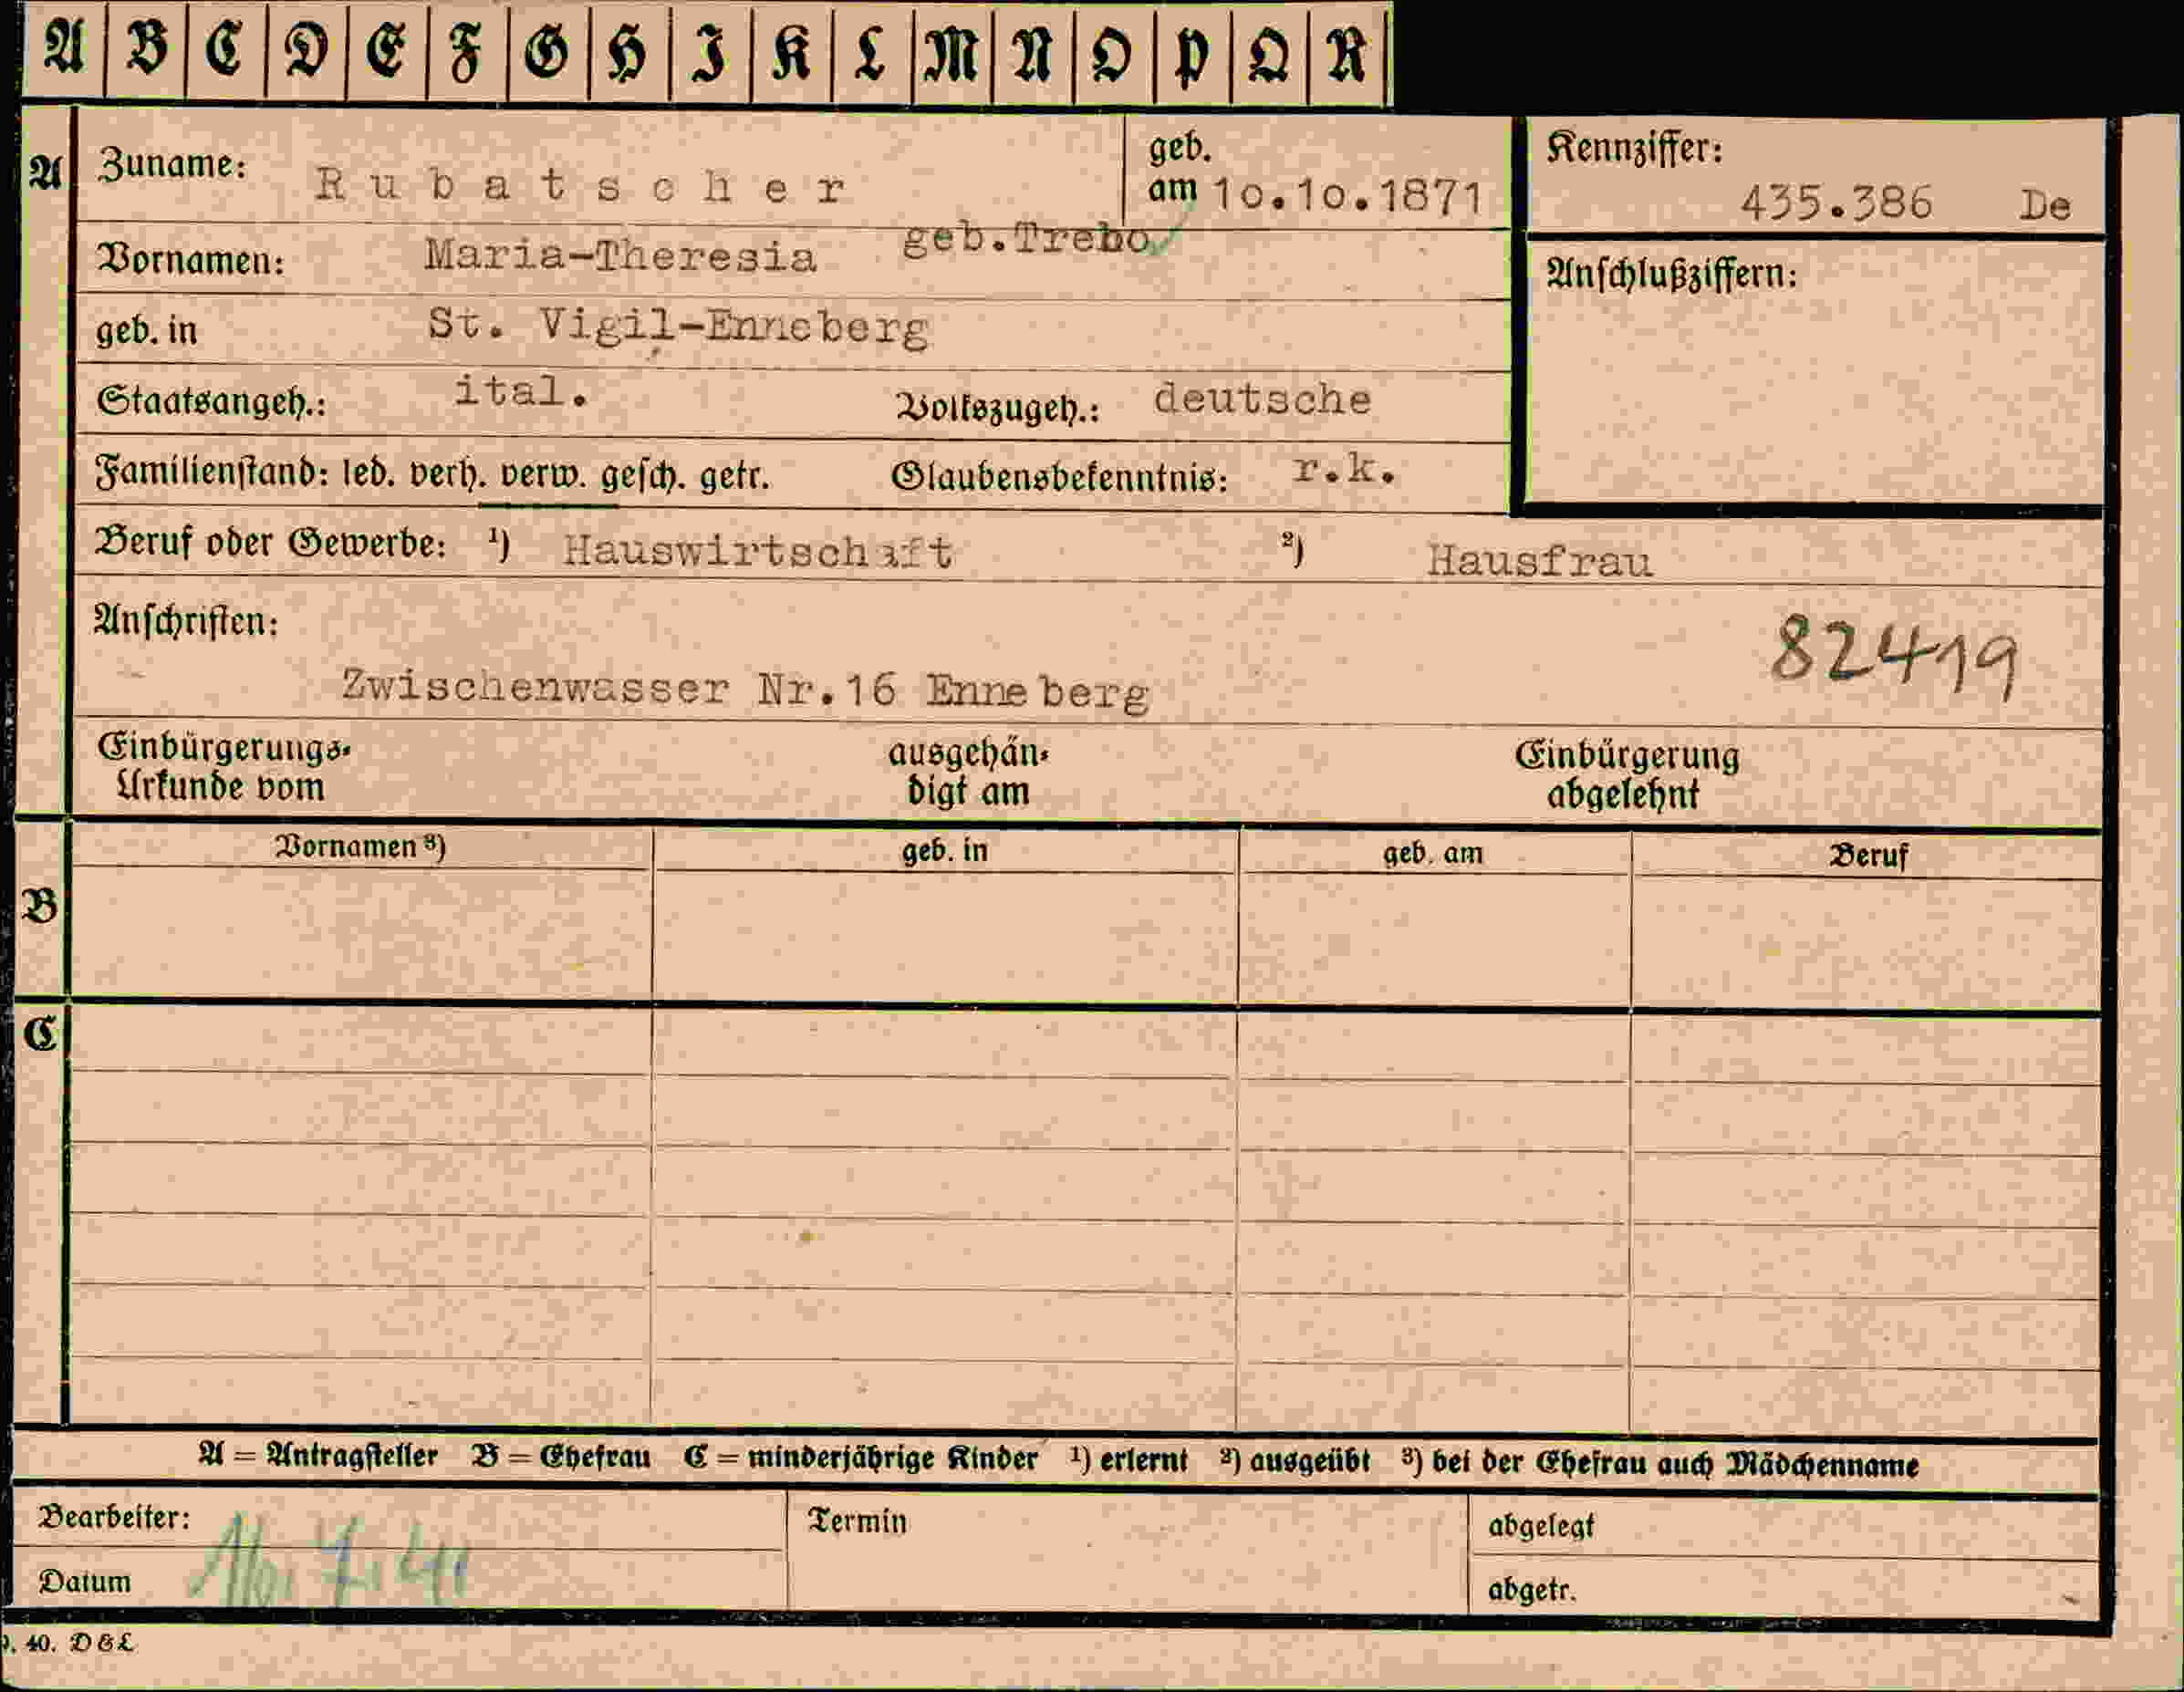 A B C D E F G H I K L M N O P Q R
A Zuname: Rubatscher geb. am 10.10.1871 Kennziffer: 435.386 De
Vornamen: Maria-Theresia geb.Trebo
Anschlußziffern:
geb. in St. Vigil-Enneberg
Staatsangeh.: ital. Volkszugeh.: deutsche
Familienstand: led. verh. verw. gesch. getr. Glaubensbekenntnis: r.k.
Beruf oder Gewerbe: ¹) Hauswirtschaft ²) Hausfrau
Anschriften:
82419
Zwischenwasser Nr.16 Enneberg
Einbürgerungs- ausgehän- Einbürgerung
Urkunde vom digt am abgelehnt
Vornamen ³) geb. in geb. am Beruf
B
C
A = Antragsteller B = Ehefrau C = minderjährige Kinder ¹) erlernt ²) ausgeübt ³) bei der Ehefrau auch Mädchenname
Bearbeiter: Termin abgelegt
16.7.41
Datum abgetr.
40. D & L